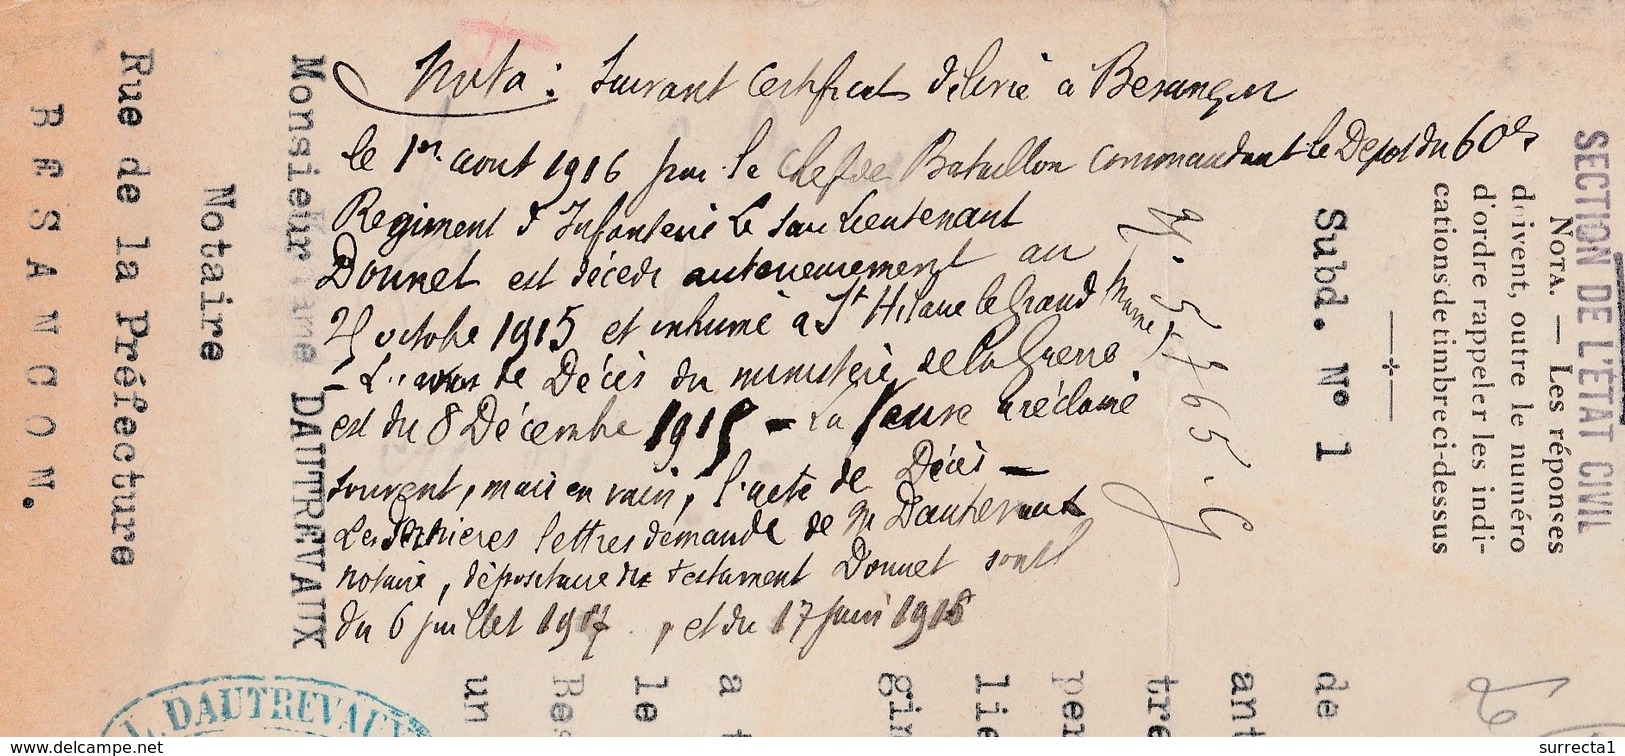 Nota : Suivant Certificat délivré à Besançon
le 1er août 1916 par le Chef de Bataillon Commandant le Dépôt du 60e
Régiment d'Infanterie Le Sous Lieutenant
Donnet est décédé antérieurement au
octobre 1915 et inhumé à St Hilaire le Grand (Marne)
de Décès du ministère de la Guerre
est du 8 Décembre 1915 - La Veuve a réclamé
souvent, mais en vain, l'acte de Décès -
Les Dernières lettres demande de Me Dautrevaux
notaire, dépositaire du testament Donnet sont
du 6 juillet 1917, et du 17 juin 1918
SECTION DE L'ÉTAT CIVIL
NOTA. — Les réponses
doivent, outre le numéro
d'ordre rappeler les indi-
cations de timbre ci-dessus
Subd. N° 1
Monsieur DAUTREVAUX
Notaire
Rue de la Préfecture
BESANCON.
de
ant
tre
per
lie
gin
a t
le
Bes
un
L. DAUTREVAUX
www.delcampe.net
surrecta1